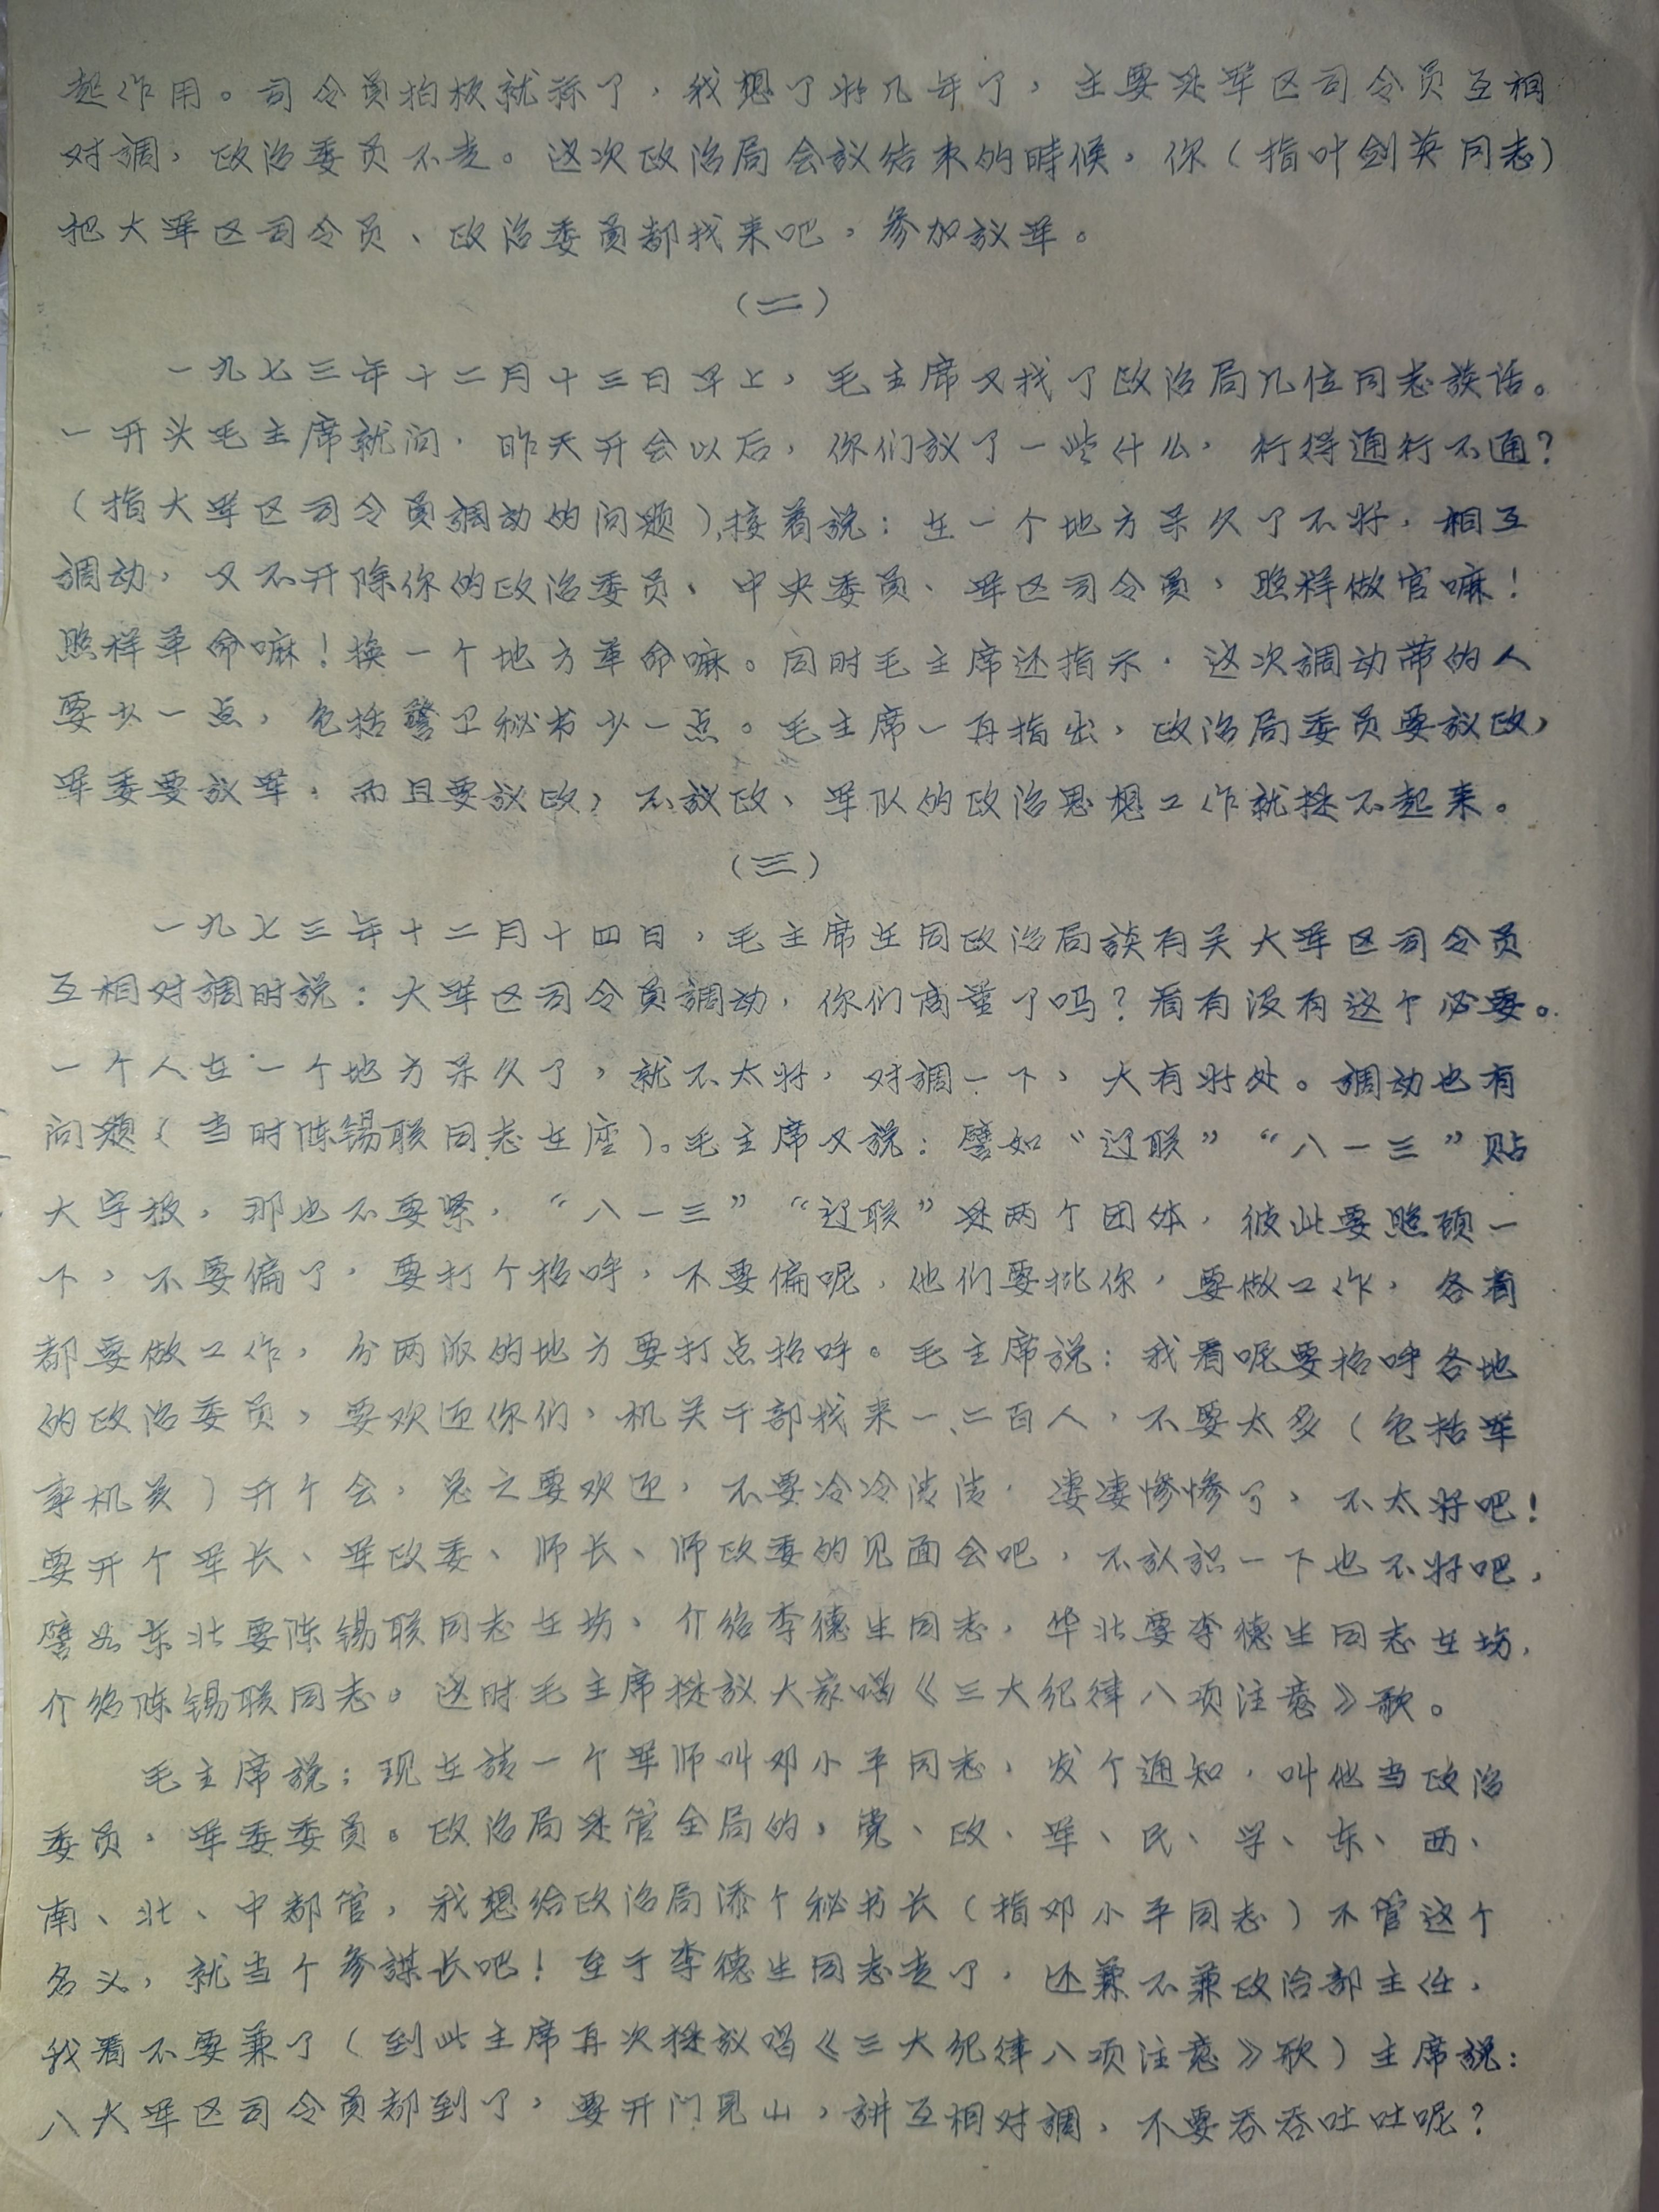 起作用。司令员拍板就称了，我想了好几年了，主要是军区司令员互相
对調，政治委员不走。这次政治局会议结束的時候，你（指叶剑英同志）
把大军区司令员、政治委员都找来吧，参加议军。
（二）
一九七三年十二月十三日早上，毛主席又找了政治局几位同志谈话。
一开头毛主席就问，昨天开会以后，你们议了一些什么，行得通行不通？
（指大军区司令员調动的问题），接着说：在一个地方呆久了不好，相互
調动，又不开除你的政治委员、中央委员、军区司令员，照样做官嘛！
照样革命嘛！换一个地方革命嘛。同时毛主席还指示，这次調动带的人
要少一点，包括警卫秘书少一点。毛主席一再指出，政治局委员要议政，
军委要议军，而且要议政，不议政、军队的政治思想工作就提不起来。
（三）
一九七三年十二月十四日，毛主席在同政治局談有关大军区司令员
互相对調时说：大军区司令员調动，你们商量了吗？看有没有这个必要。
一个人在一个地方呆久了，就不太好，对調一下，大有好处。調动也有
问题（当时陈锡联同志在座）。毛主席又说：譬如“辽联”“八一三”贴
大字报，那也不要紧，“八一三”“辽联”是两个团体，彼此要照顾一
下，不要偏了，要打个招呼，不要偏呢，他们要批你，要做工作，各省
都要做工作，分两派的地方要打点招呼。毛主席说：我看呢要招呼各地
的政治委员，要欢迎你们，机关干部找来一、二百人，不要太多（包括军
事机关）开个会，总之要欢迎，不要冷冷清清，凄凄惨惨了，不太好吧！
要开个军长、军政委、师长、师政委的见面会吧，不认识一下也不好吧，
譬如东北要陈锡联同志在场，介绍李德生同志，华北要李德生同志在场，
介绍陈锡联同志。这时毛主席提议大家唱《三大纪律八项注意》歌。
毛主席说：现在请一个军师叫邓小平同志，发个通知，叫他当政治
委员，军委委员。政治局是管全局的，党、政、军、民、学、东、西、
南、北、中都管，我想给政治局添个秘书长（指邓小平同志）不管这个
名义，就当个参謀长吧！至于李德生同志走了，还兼不兼政治部主任，
我看不要兼了（到此主席再次提议唱《三大纪律八项注意》歌）主席说：
八大军区司令员都到了，要开门见山，讲互相对調，不要吞吞吐吐呢？